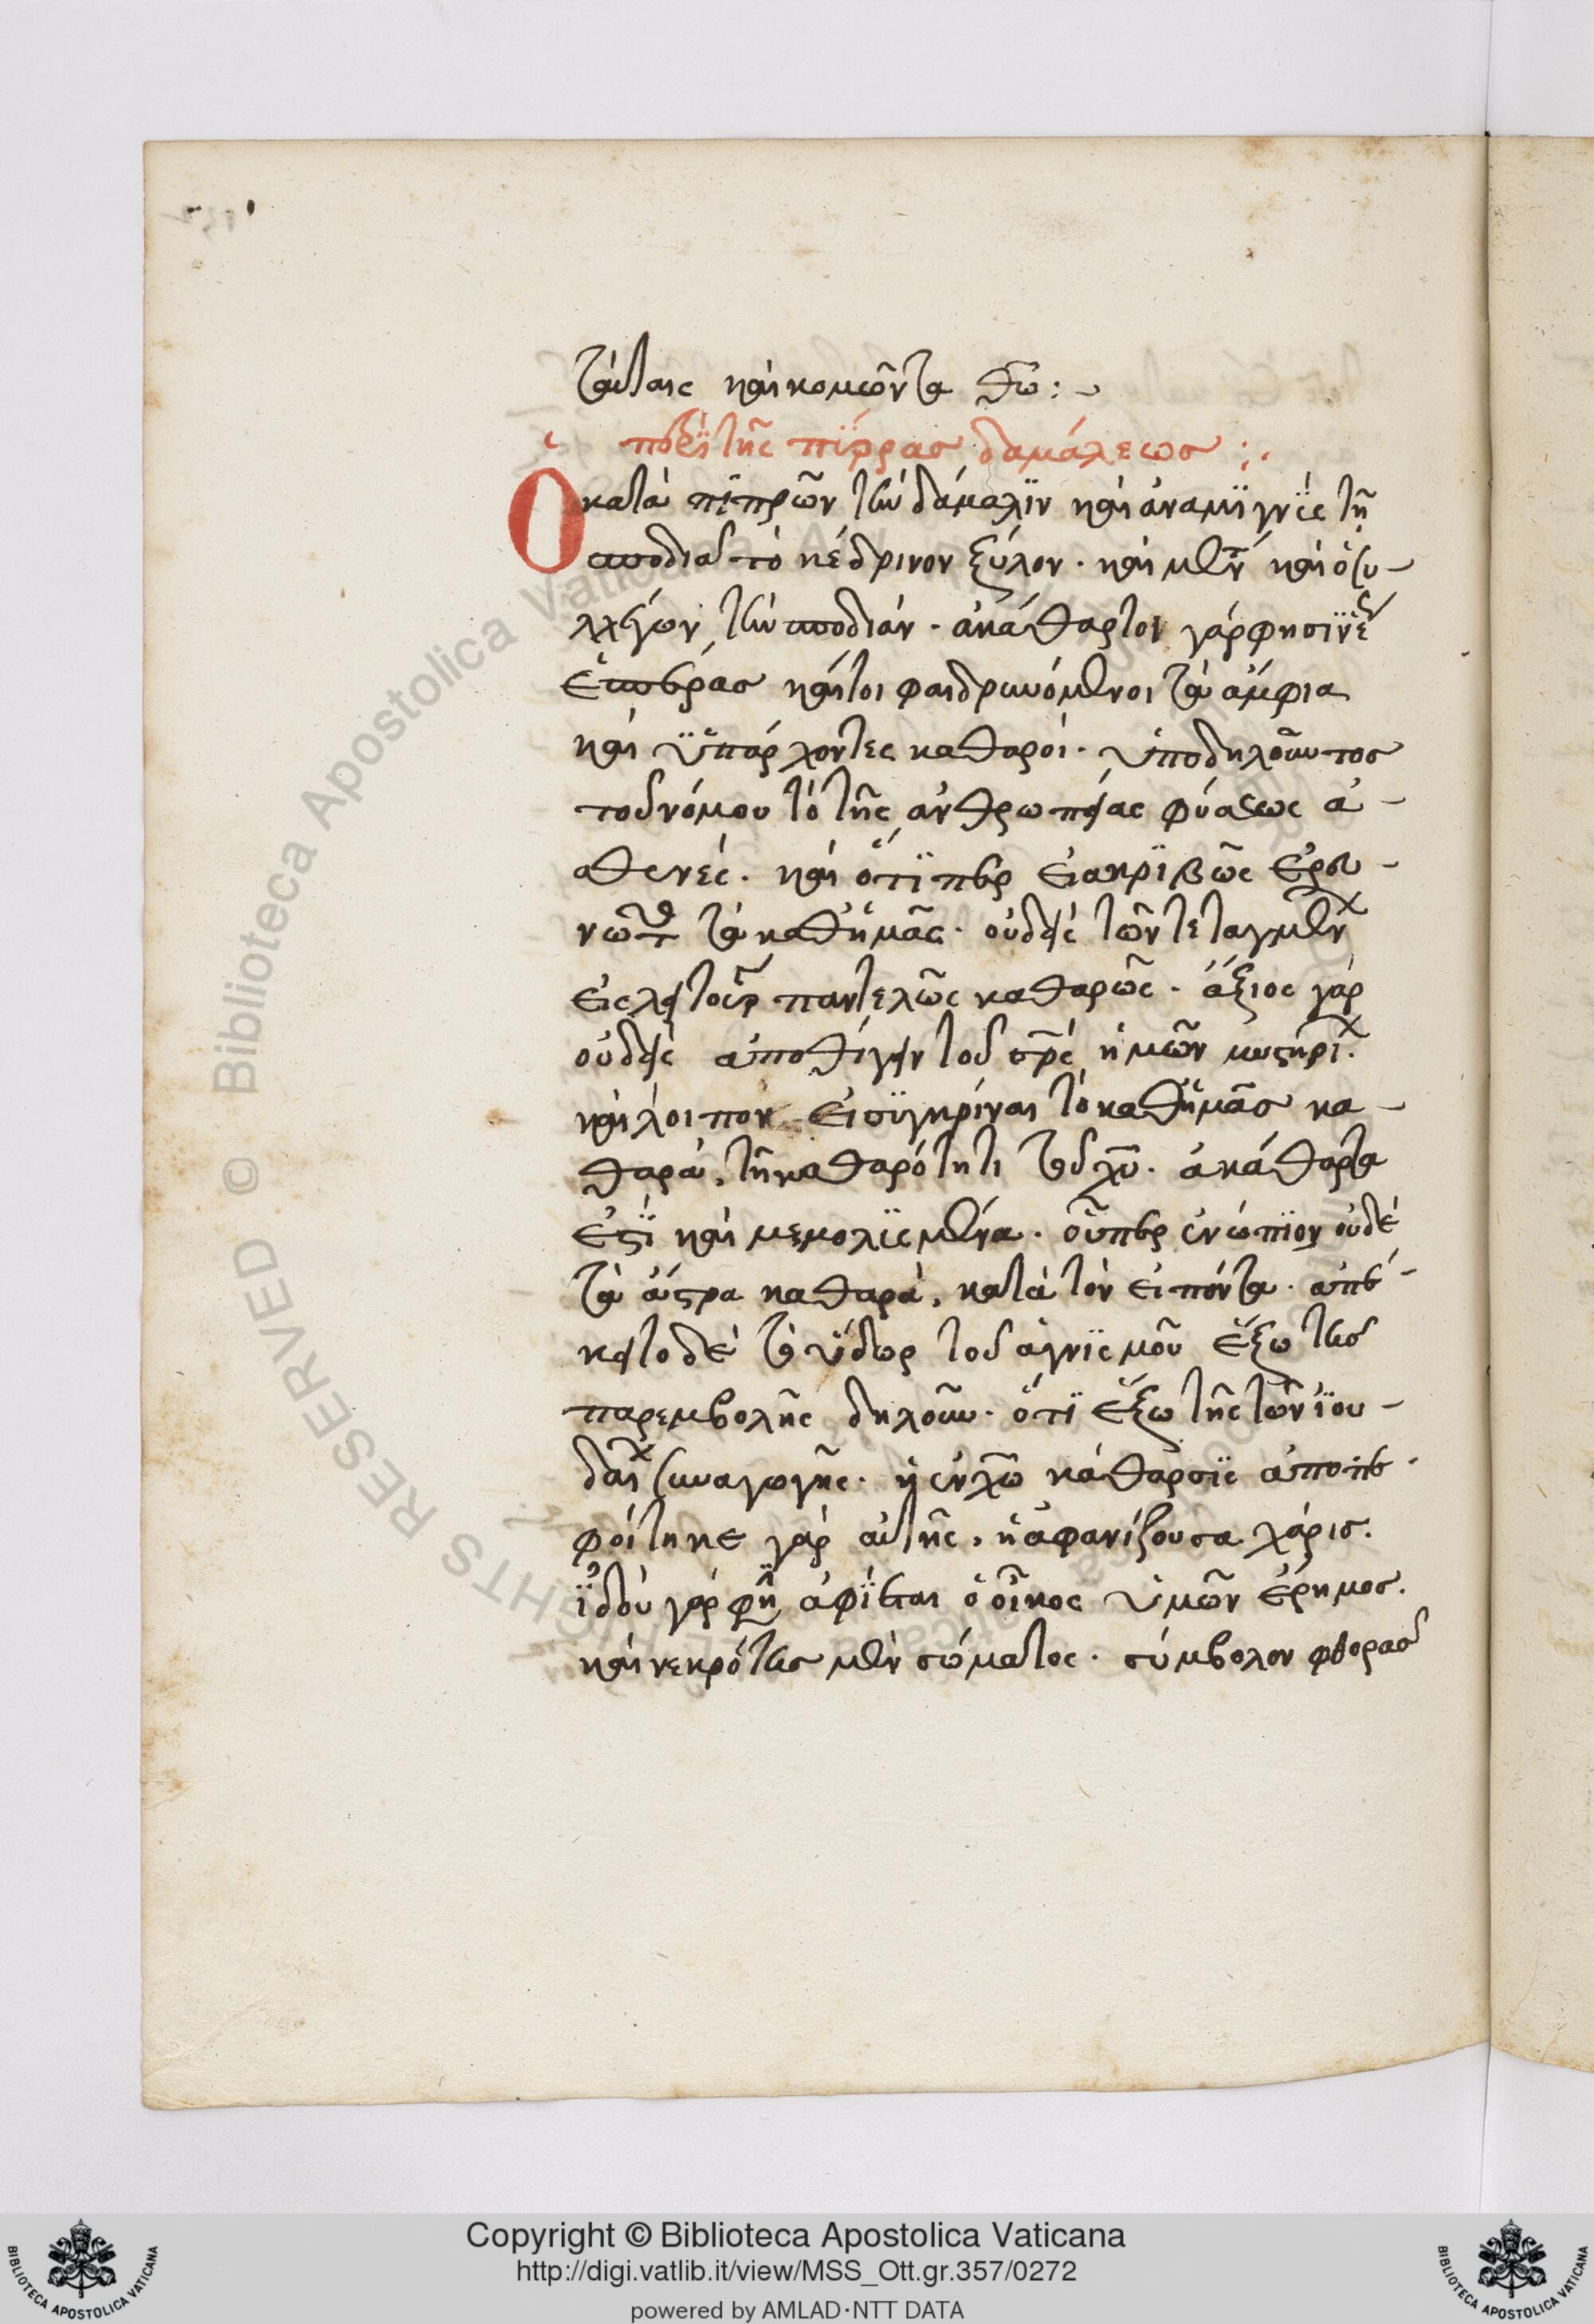 ταύταις καὶ κομῶντα θῶ :~
περὶ τῆς πύρρας δαμάλεως :·
Ὁ κατὰ πιπρῶν τὴν δάμαλϊν καὶ ἀναμϊγνῒς τῆ
σποδιᾶ τὸ κέδρινον ξύλον · καὶ μέντοι καὶ ὁ συ-
λλέγων τὴν σποδιάν · ἀκάθαρτοι γάρ φησιν ἕως
ἑσπέρας καίτοι φαιδρυνόμενοι τὰ ἄμφια
καὶ ὑπάρχοντες καθαροί · ὑποδηλοῦντος
τοῦ νόμου τὸ τῆς ἀνθρωπείας φύσεως ἀ-
σθενές · καὶ ὅτϊπερ εἰ ἀκρϊβῶς ἐρευ-
νῶτο τὰ καθ ἡμᾶς · οὐδεὶς τῶν τεταγμένων
εἰς λειτουρ παντελῶς καθαρῶς · ἄξιος γὰρ
οὐδεὶς ἀποθίγειν τοῦ σρς ἡμῶν μυστηρι ·
καὶ λοιπὸν εἰ συγκρίναι τὸ καθ ἡμᾶς κα-
θαρὰ, τῆ καθαρότητι τοῦ χυ · ἀκάθαρτα
ἐστῒ καὶ μεμολϊσμένα · οὗπερ ἐνώπϊον οὐδὲ
τὰ ἄστρα καθαρὰ, κατὰ τὸν εἰπόντα · ἀπέ-
κειτο δὲ τὸ ὕδωρ τοῦ ἁγνϊσμοῦ ἔξω τῆς
παρεμβολῆς δηλοῦν · ὅτϊ ἔξω τῆς τῶν ϊου-
δαίων συναγωγῆς · ἡ ἐν χω κάθαρσϊς ἀποπε
φοίτηκε γὰρ αὐτῆς, ἡ ἀφανίζουσα χάρις ·
ϊδοὺ γάρ φησιν ἀφίεται ὁ οἶκος ὑμῶν ἔρημος ·
καὶ νεκρότης μὲν σώματος · σύμβολον φθορᾶς